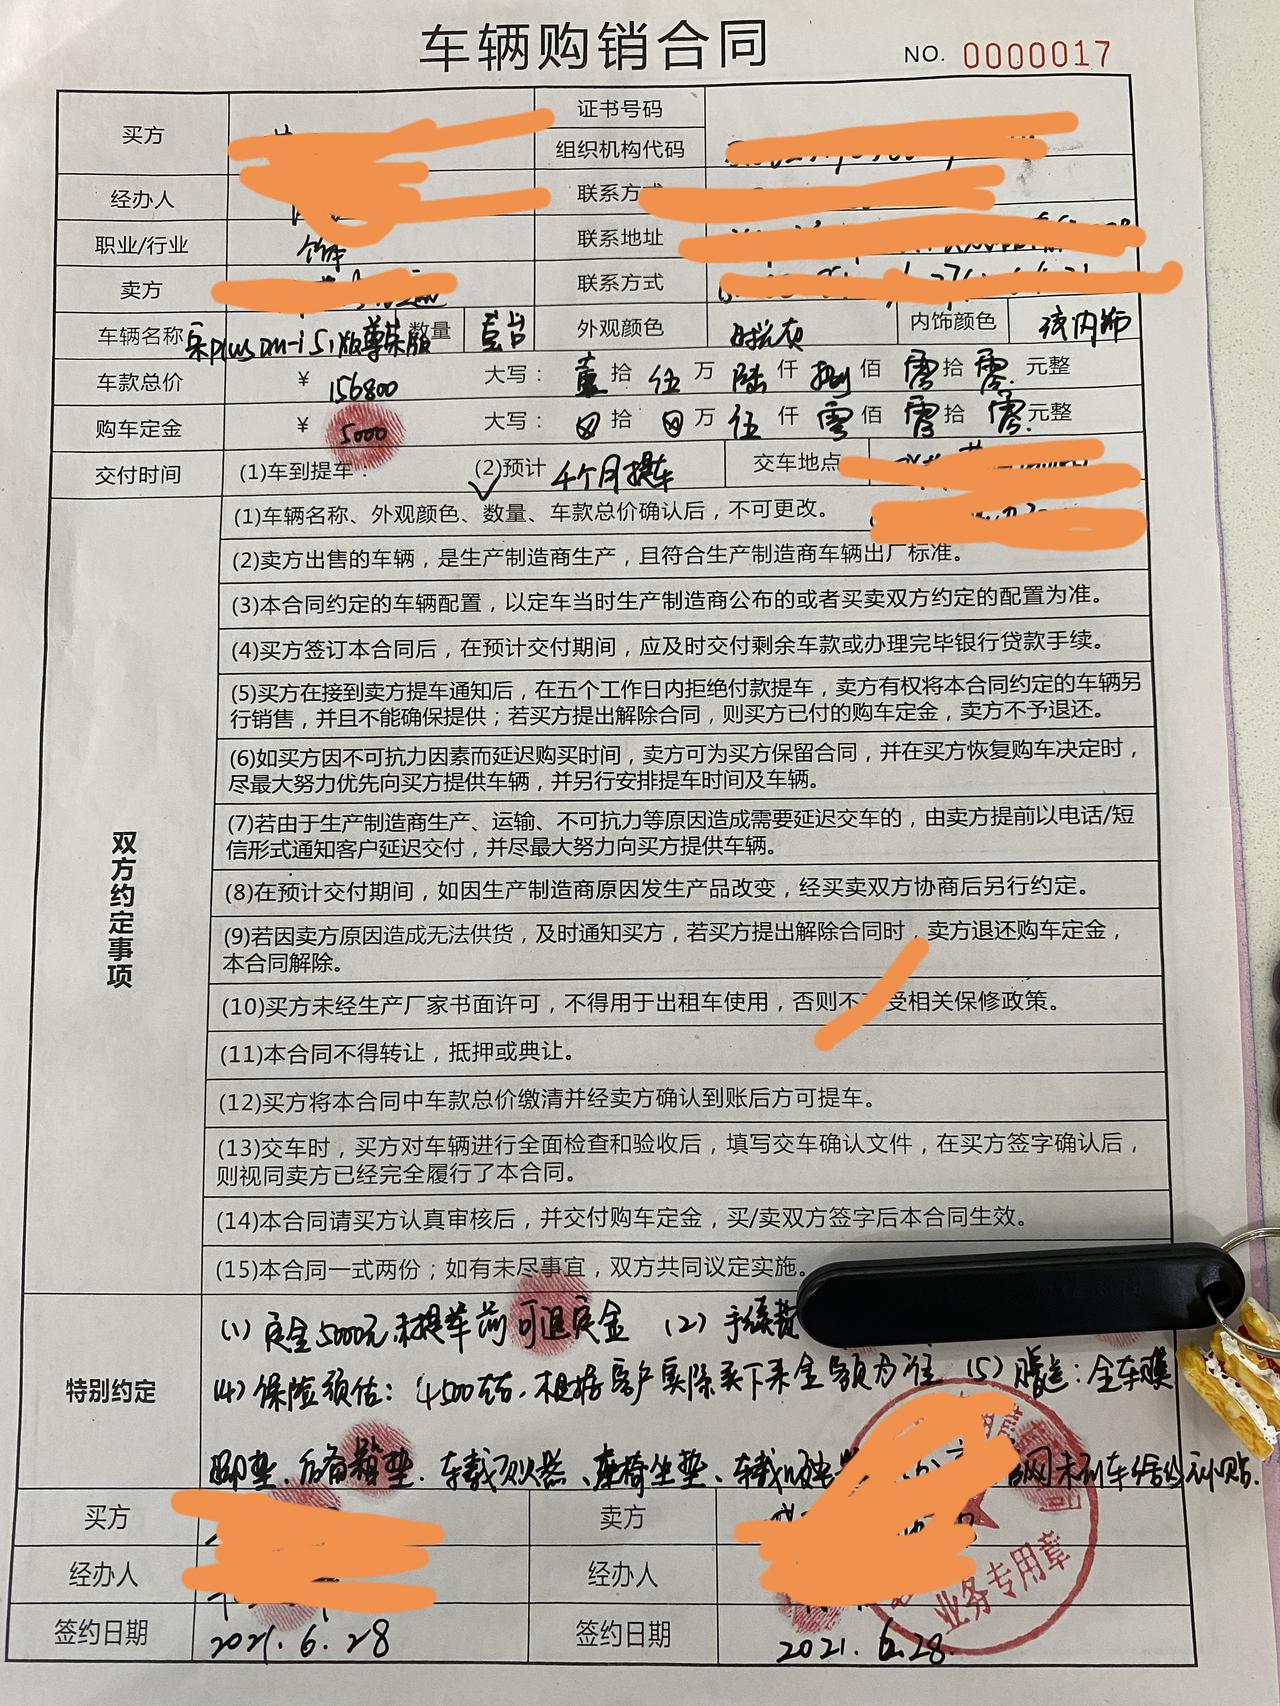 车辆购销合同
NO. 0000017
买方 证书号码
组织机构代码
经办人 联系方式
职业/行业 联系地址
卖方 联系方式
车辆名称 宋plus DM-i 51版尊荣版 数量 壹台 外观颜色 时光灰 内饰颜色 内饰
车款总价 ¥ 156800 大写： 壹 拾 伍 万 陆 仟 捌 佰 零 拾 零 元整
购车定金 ¥ 5000 大写： ⊗ 拾 ⊗ 万 伍 仟 零 佰 零 拾 零 元整
交付时间 (1)车到提车： (2)预计 4个月提车 交车地点
双方约定事项
(1)车辆名称、外观颜色、数量、车款总价确认后，不可更改。
(2)卖方出售的车辆，是生产制造商生产，且符合生产制造商车辆出厂标准。
(3)本合同约定的车辆配置，以定车当时生产制造商公布的或者买卖双方约定的配置为准。
(4)买方签订本合同后，在预计交付期间，应及时交付剩余车款或办理完毕银行贷款手续。
(5)买方在接到卖方提车通知后，在五个工作日内拒绝付款提车，卖方有权将本合同约定的车辆另
行销售，并且不能确保提供；若买方提出解除合同，则买方已付的购车定金，卖方不予退还。
(6)如买方因不可抗力因素而延迟购买时间，卖方可为买方保留合同，并在买方恢复购车决定时，
尽最大努力优先向买方提供车辆，并另行安排提车时间及车辆。
(7)若由于生产制造商生产、运输、不可抗力等原因造成需要延迟交车的，由卖方提前以电话/短
信形式通知客户延迟交付，并尽最大努力向买方提供车辆。
(8)在预计交付期间，如因生产制造商原因发生产品改变，经买卖双方协商后另行约定。
(9)若因卖方原因造成无法供货，及时通知买方，若买方提出解除合同时，卖方退还购车定金，
本合同解除。
(10)买方未经生产厂家书面许可，不得用于出租车使用，否则不 受相关保修政策。
(11)本合同不得转让，抵押或典让。
(12)买方将本合同中车款总价缴清并经卖方确认到账后方可提车。
(13)交车时，买方对车辆进行全面检查和验收后，填写交车确认文件，在买方签字确认后，
则视同卖方已经完全履行了本合同。
(14)本合同请买方认真审核后，并交付购车定金，买/卖双方签字后本合同生效。
(15)本合同一式两份；如有未尽事宜，双方共同议定实施。
特别约定
(1) 定金5000元未提车前可退定金 (2) 手续费
(4) 保险预估：4500左右，根据客户实际买下来金额为准 (5) 赠送：全车膜
脚垫、后备箱垫、车载灭火器、座椅坐垫、车载吸尘 未到车给 补贴.
买方 卖方
经办人 经办人
签约日期 2021.6.28 签约日期 2021.6.28
业务专用章